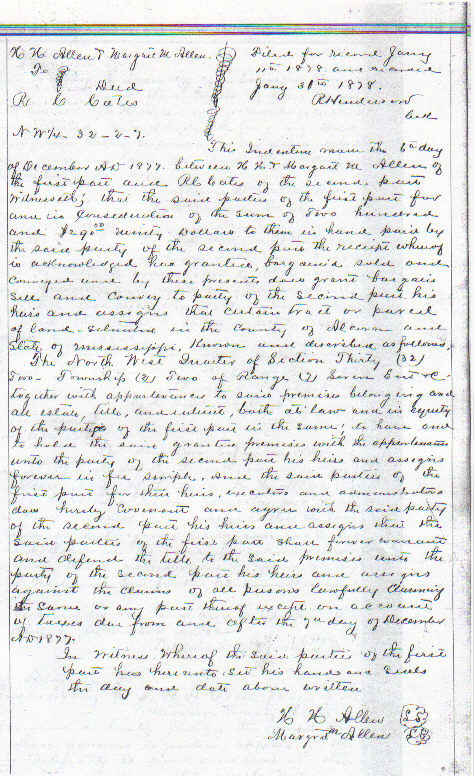 H H Allen & Margret M Allen.
To Deed
R C Cates
Filed for record Jany
11th 1878 and recorded
Jany 31st 1878.
R Henderson
Clk
N W 1/4 - 32 - 2 - 7.
This Indenture made the 6th day
of December AD 1877. between H H & Margret M Allen of
the first part and R C Cates of the second part
Witnesseth; that the said parties of the first part for
and in Consideration of the sum of Two hundred
and $290 00 ninety Dollars to them in hand paid by
the said party of the second part the receipt whereof
is acknowledged has granted, bargain'd sold and
conveyed and by these presents does grant bargain
Sell and Convey to party of the Second part his
heirs and assigns that certain tract or parcel
of land situated in the County of Alcorn and
State of Mississippi, Known and discribed as follows.
The North West Quarter of Section Thirty (32)
Two - Township (2) Two of Range (7) Seven East &c
together with appertenances to said premises belonging and
all estate, title, and interest, both at law and in equity
of the parties of the first part in the same; to have and
to hold the said granted premises with the appertenances
unto the party of the second part his heirs and assigns
forever in fee simple. And the said parties of the
first part for their heirs, executors and administrators
does hereby Covenant and agree with the said party
of the second part his heirs and assigns that the
said parties of the first part shall forever warrant
and defend the title to the said premises unto the
party of the second part his heirs and assigns
against the claims of all persons lawfully claiming
the same or any part thereof except on account
of Taxes due from and after the 7th day of December
AD 1877.
In Witness Whereof the said parties of the first
part has hereunto set his hands and Seals
the day and date above written
H H Allen L.S.
Margret M Allen L.S.